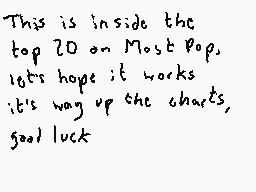 This is inside the
top 20 on Most Pop,
let's hope it works
it's way up the charts,
good luck